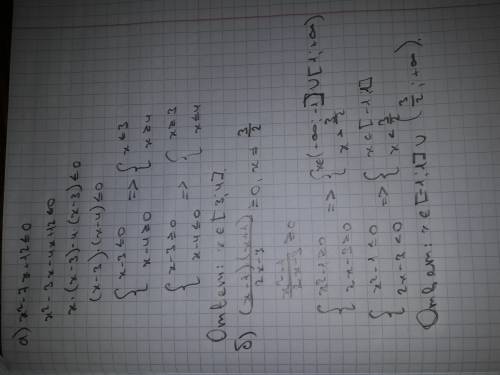 а) x²-7x-12≤0
x²-3x-4x+12≤0
x·(x-3)-4(x-3)≤0
(x-3)·(x-4)≤0
{ x-3≤0 x-4≥0 => { x≤3 x≥4
{ x-3≥0 x-4≤0 => { x≥3 x≤4
Ответ: x∈[3;4].
б) (x-1)(x+1)/2x-3 ≥0, x≠3/2
x²-1/2x-3 ≥0
{ x²-1≥0 2x-3≥0 => { x∈(-∞;-1]∪[1;+∞) x>3/2
{ x²-1≤0 2x-3<0 => { x∈[-1;1] x<3/2
Ответ: x∈[-1;1]∪(3/2;+∞).